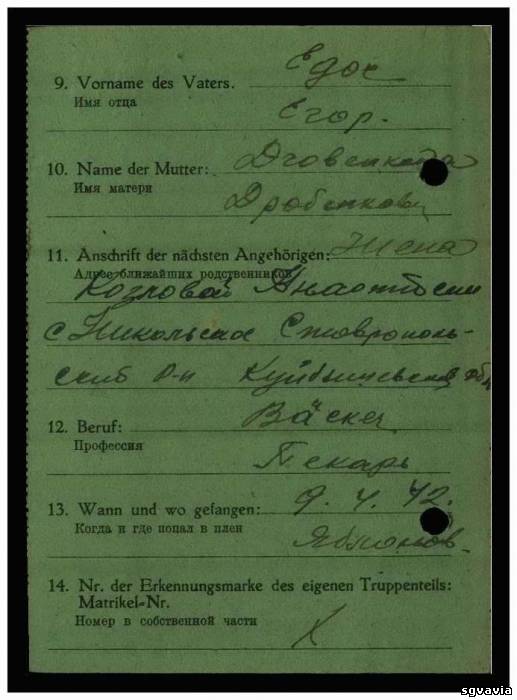 9. Vorname des Vaters.
Имя отца
Егор.
10. Name der Mutter:
Имя матери
11. Anschrift der nächsten Angehörigen: Жена
Адрес ближайших родственников
Козловой Анастасии
с Никольское Ставрополь-
ский р-н Куйбышевской обл
12. Beruf: Bäcker
Профессия
Пекарь
13. Wann und wo gefangen: 9. 4. 42.
Когда и где попал в плен
14. Nr. der Erkennungsmarke des eigenen Truppenteils:
Matrikel-Nr.
Номер в собственной части
X
sgvavia